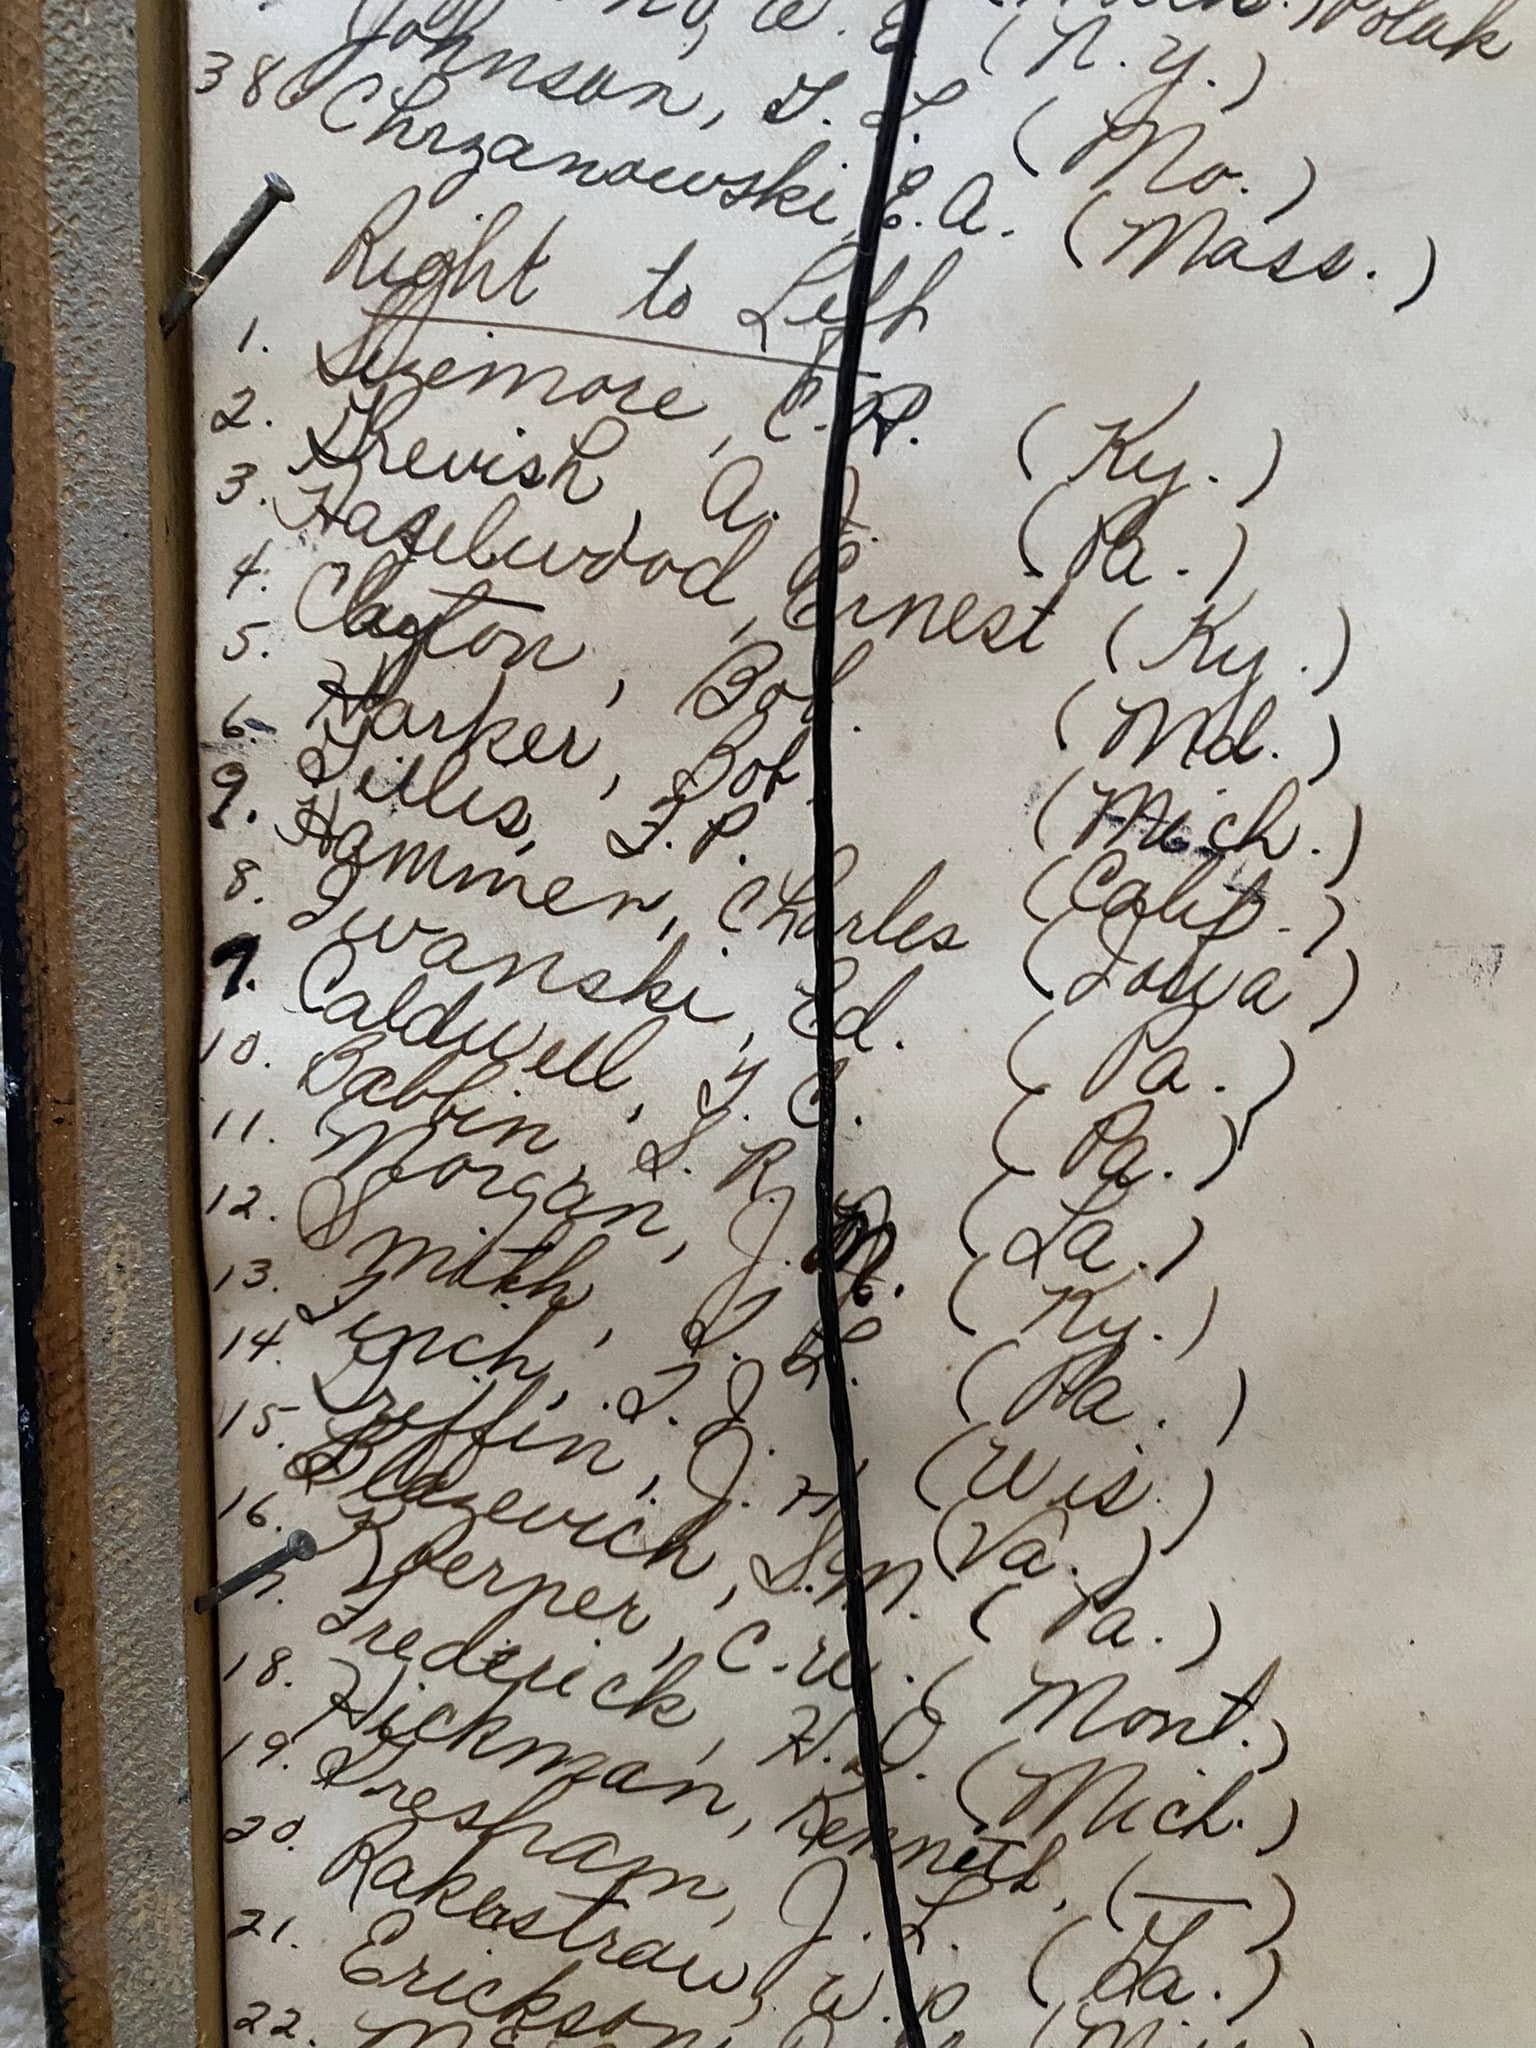 W. E. (N.Y.) Polak
Johnson, T. L. (Mo.)
38. Chrzanowski, E. A. (Mass.)
Right to Left
1. Sizemore, C. P. (Ky.)
2. Threvish, A. J. (Pa.)
3. Hazelwood, Ernest (Ky.)
4. Clayton, Bob. (Md.)
5. Harker, Bob (Mich.)
6. Tillis, F. P. (Calif.)
7. Hammer, Charles (Iowa)
8. Iwanski, Ed. (Pa.)
9. Caldwell, Y. C. (Pa.)
10. Babbin, S. R. (La.)
11. Morgan, J. M. (Ky.)
12. Smith, T. L. (Pa.)
13. Finch, F. J. (Wis.)
14. Griffin, J. H. (Va.)
15. Blazevich, S. M. (Pa.)
16. Koerner, C. W. (Mont.)
17. Frederick, H. O. (Mich.)
18. Hickman, Kenneth, (—)
19. Gresham, J. L. (Ga.)
20. Rakestraw, W. P
21. Erickson,
22.